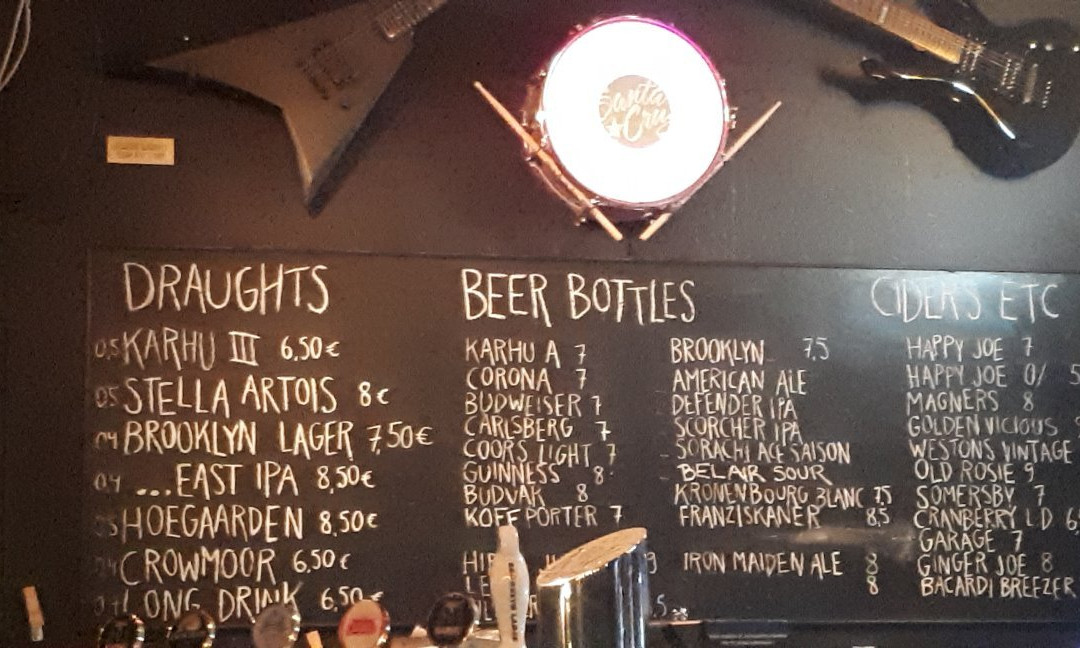 Santa
Cruz
DRAUGHTS
0,5 KARHU III 6,50€
0,5 STELLA ARTOIS 8€
0,4 BROOKLYN LAGER 7,50€
0,4 ...EAST IPA 8,50€
HOEGAARDEN 8,50€
CROWMOOR 6,50€
LONG DRINK 6,50
BEER BOTTLES
KARHU A 7
CORONA 7
BUDWEISER 7
CARLSBERG 7
COORS LIGHT 7
GUINNESS 8
BUDVAR 8
KOFF PORTER 7
BROOKLYN 7,5
AMERICAN ALE
DEFENDER IPA
SCORCHER IPA
SORACHI ACE SAISON
BEL AIR SOUR
KRONENBOURG BLANC 7,5
FRANZISKANER 8,5
IRON MAIDEN ALE 8
8
CIDERS ETC
HAPPY JOE 7
HAPPY JOE 0/ 5
MAGNERS 8
GOLDEN VICIOUS
WESTONS VINTAGE
OLD ROSIE 9
SOMERSBY 7
CRANBERRY LD 6,
GARAGE 7
GINGER JOE 8
BACARDI BREEZER